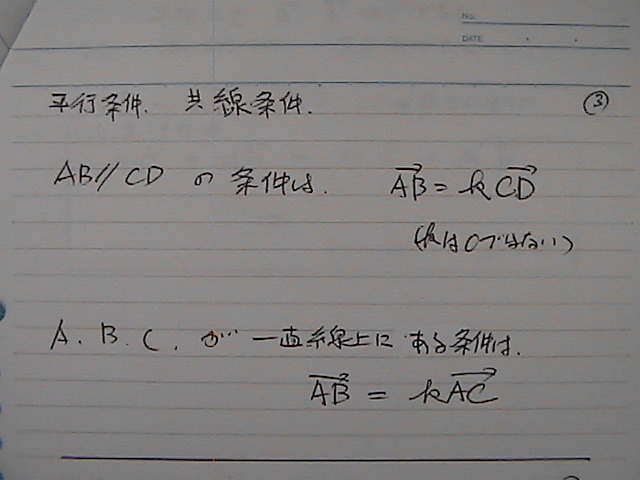 No.
DATE
平行条件. 共線条件. ③
AB∥CD の条件は. $\overrightarrow{AB} = k\overrightarrow{CD}$
(kは0ではない)
A. B. C. が 一直線上に ある条件は.
$\overrightarrow{AB} = k\overrightarrow{AC}$